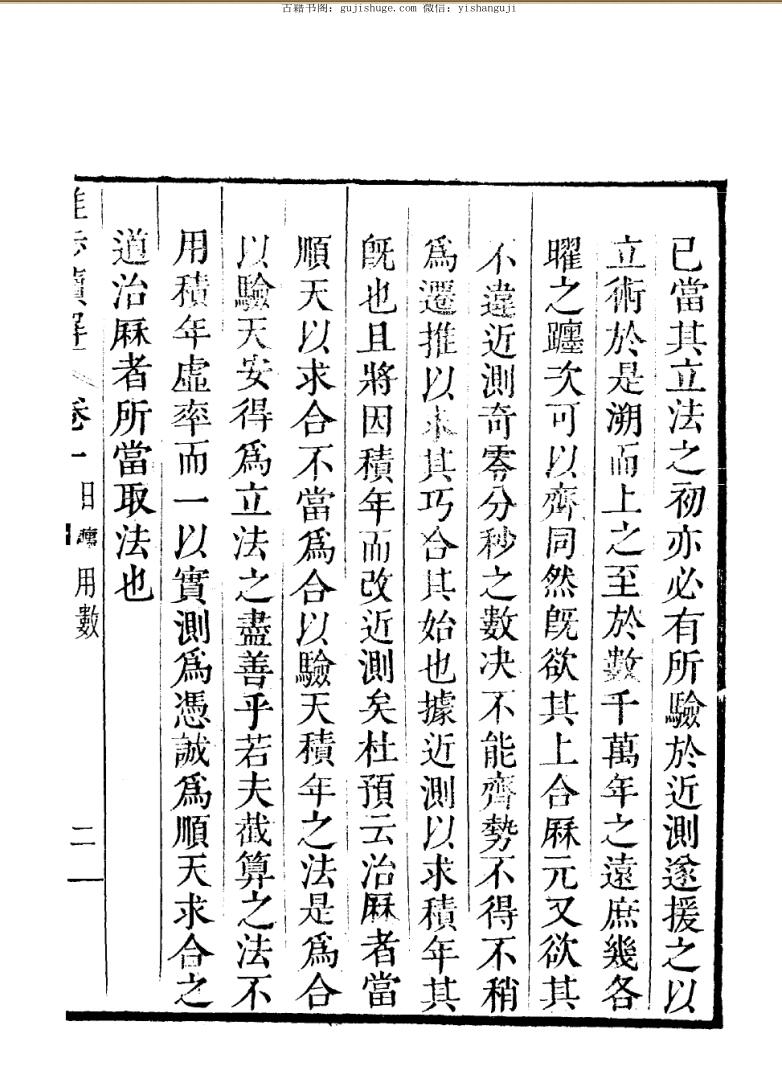 古籍书阁：gujishuge.com 微信：yishanguji
已當其立法之初亦必有所驗於近測遂援之以
立術於是溯而上之至於數千萬年之遠庶幾各
曜之躔次可以齊同然旣欲其上合厤元又欲其
不違近測奇零分秒之數决不能齊勢不得不稍
爲遷推以求其巧合其始也據近測以求積年其
旣也且將因積年而改近測矣杜預云治厤者當
順天以求合不當爲合以驗天積年之法是爲合
以驗天安得爲立法之盡善乎若夫截算之法不
用積年虛率而一以實測爲憑誠爲順天求合之
道治厤者所當取法也
卷一 日躔 用數 二